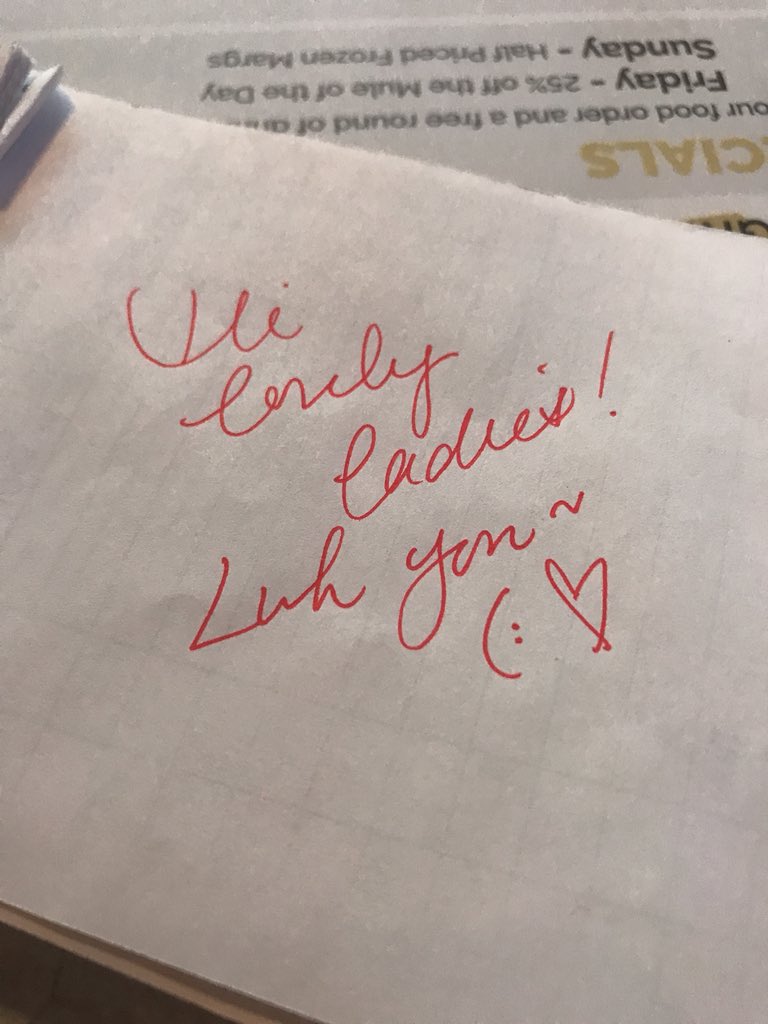 CIALS
our food order and a free round of
Friday - 25% off the Mule of the Day
Sunday - Half Priced Frozen Margs
Hi
lovely
ladies!
Luh you~
(: ♡